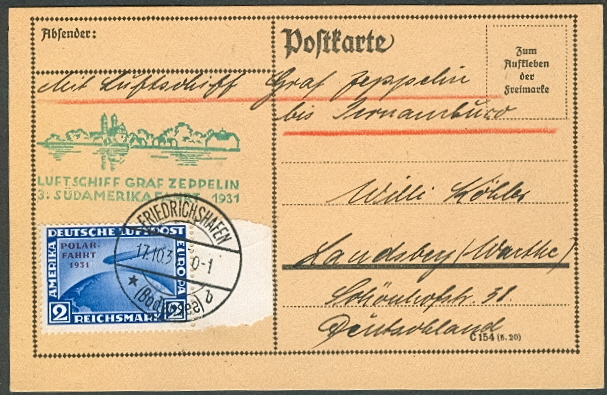 Absender:
Postkarte
Zum
Aufkleben
der
Freimarke
Mit Luftschiff Graf Zeppelin
bis Pernambuco
LUFTSCHIFF GRAF ZEPPELIN
3. SÜDAMERIKAFAHRT 1931
Willi Köhler
Landsberg (Warthe)
Schönhofstr. 38.
Deutschland
FRIEDRICHSHAFEN
17.10.3 0-1
(Bodensee) d
DEUTSCHE LUFTPOST
AMERIKA
EUROPA
POLAR-
FAHRT
1931
2 REICHSMARK 2
C 154 (6. 20)